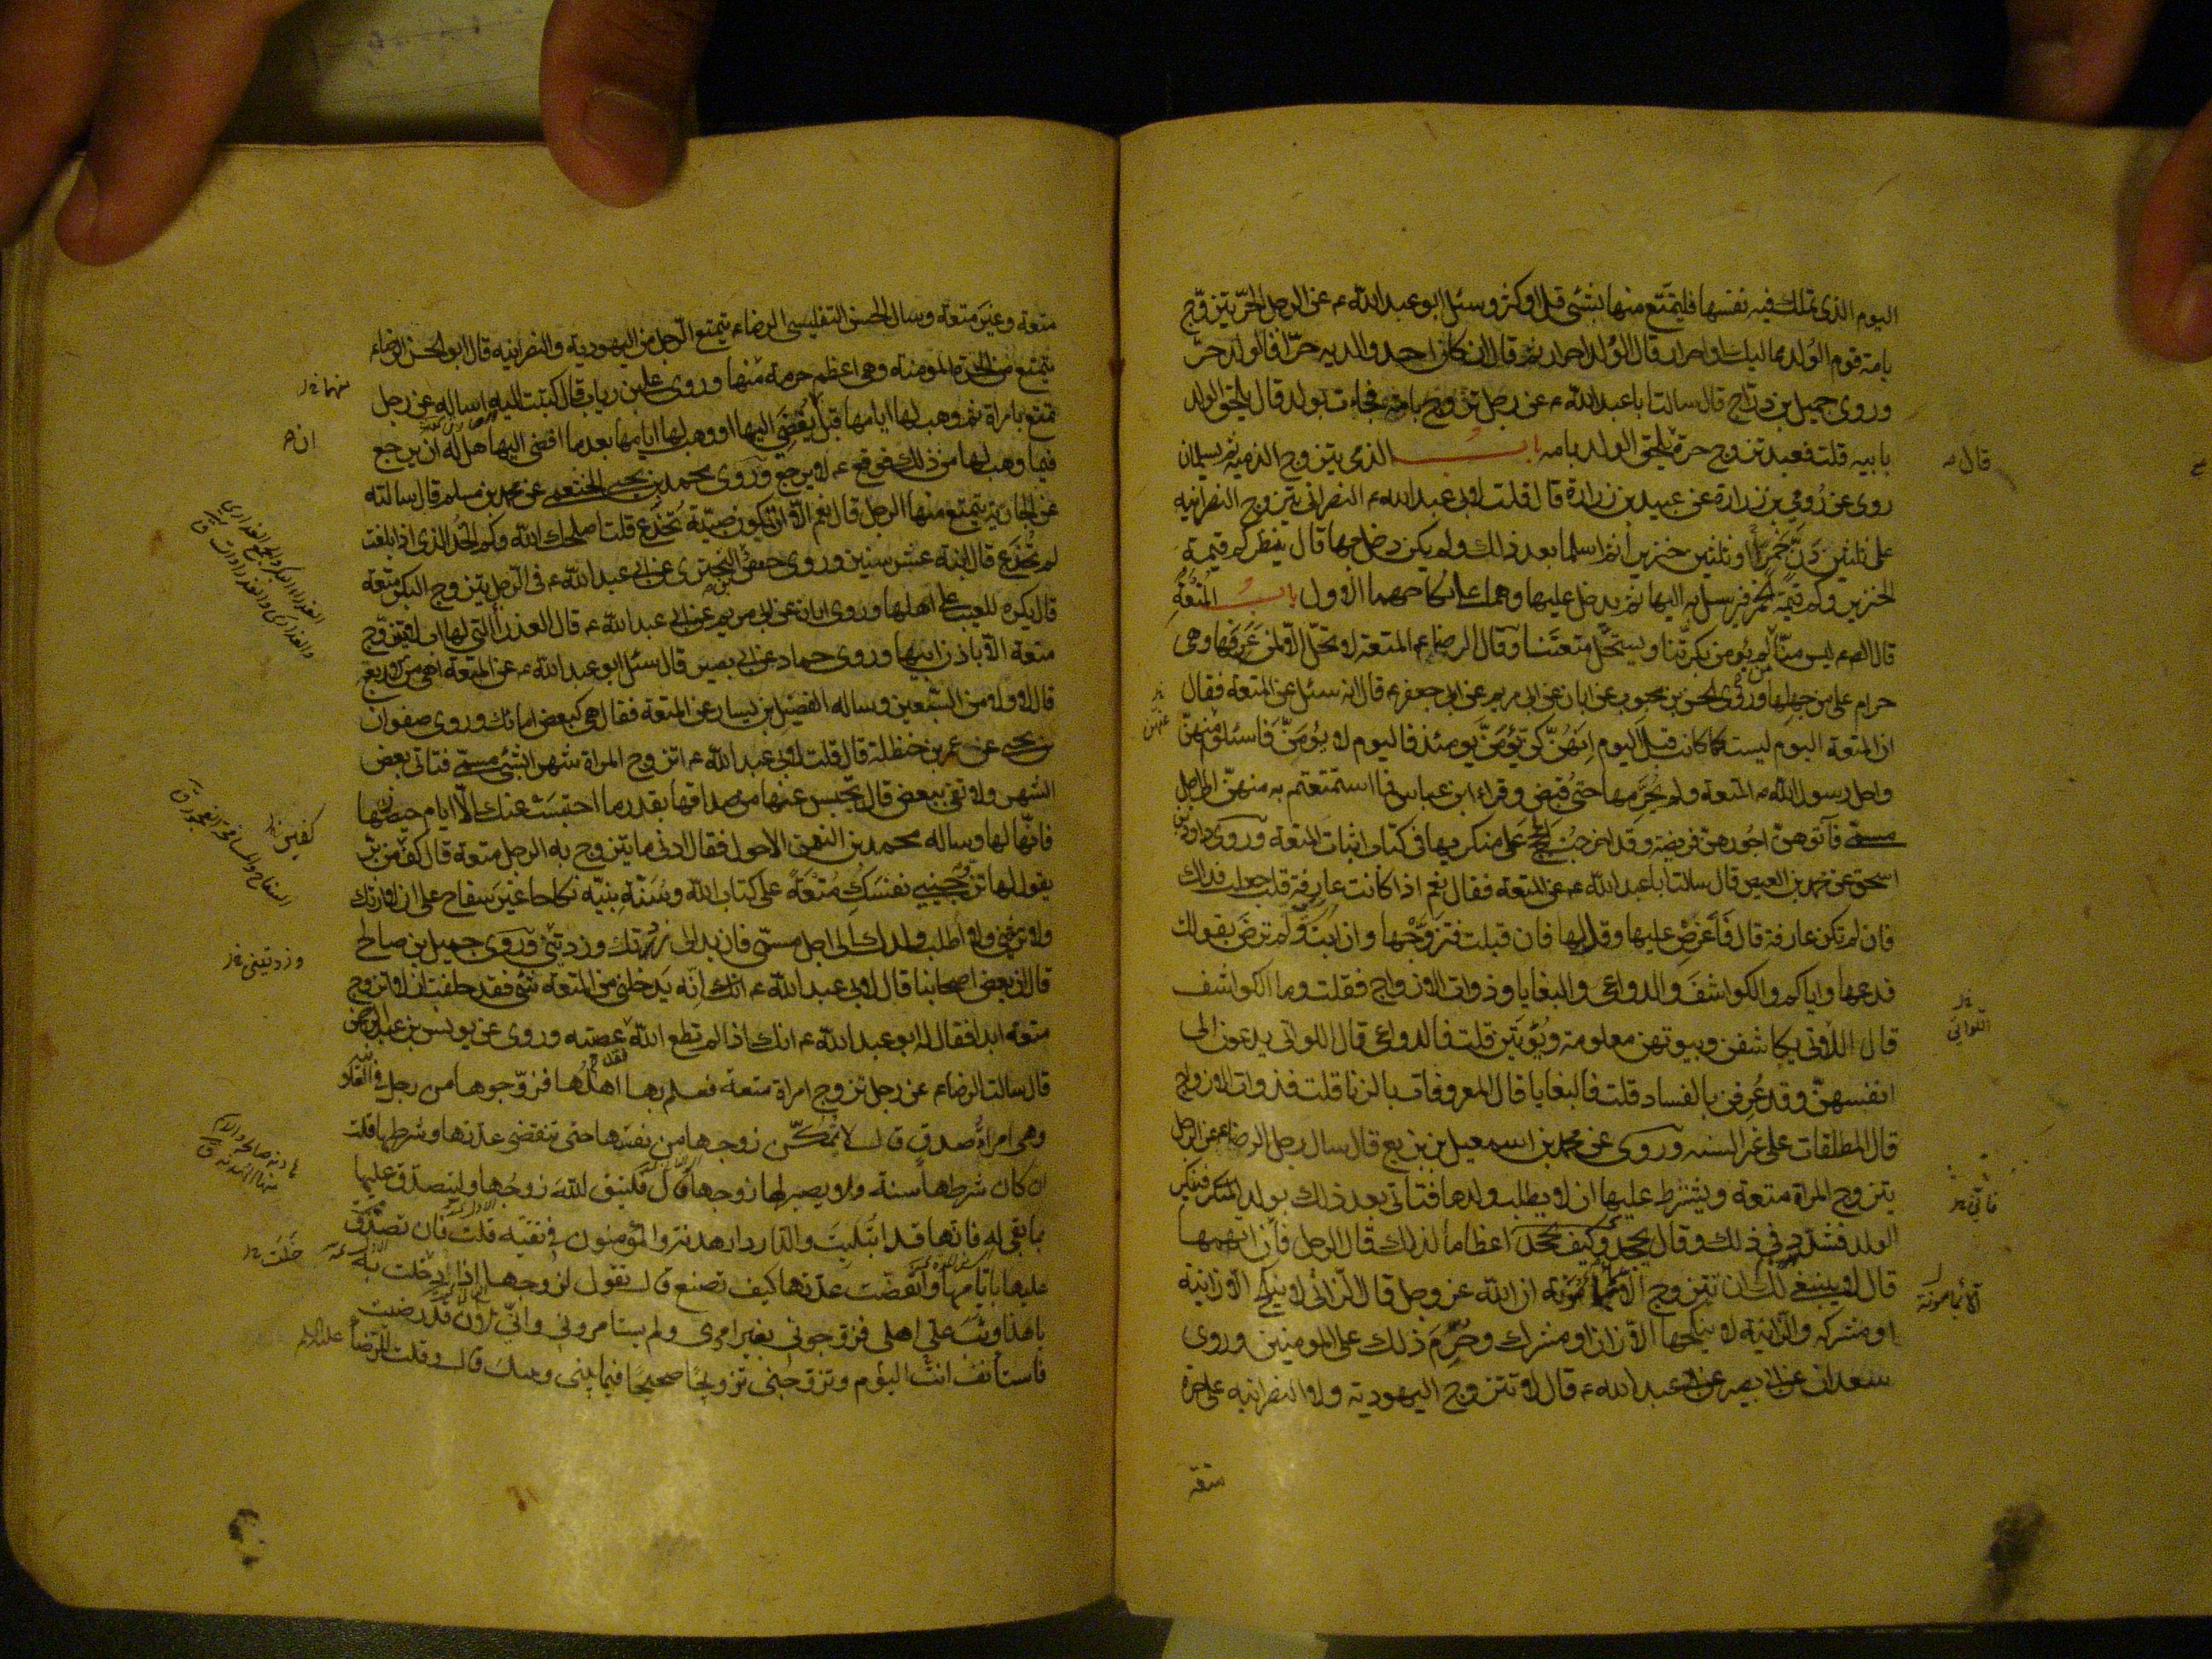 اليوم الذى تملك فيه نفسها فليتمتع منها بشئ قل او كثر وسئل ابو عبدالله ء عن الرجل الحر يتزوج
بامة قوم الولد مماليك او احرار قال الولد احرار ثم قال ان كان احد والديه حرا فالولد حر
وروى جميل بن دراج قال سالت ابا عبدالله ء عن رجل تزوج بامة فجاءت بولد قال يلحق الولد
بابيه قلت فعبد تزوج حرة يلحق الولد بامه باب الذمى يتزوج الذمية ثم يسلمان
روى عن رومى بن زرارة عن عبيد بن زرارة قال قلت لابى عبدالله ء النصرانى يتزوج النصرانية
على ثلثين دن خمرا او ثلثين خنزيرا ثم اسلما بعد ذلك ولم يكن دخل بها قال ينظر كم قيمة
الخنزير وكم قيمة الخمر فيرسل به اليها ثم يدخل عليها وهما على نكاحهما الاول باب المتعة
قال الص ء ليس منا من لم يؤمن بكرتنا ويستحل متعتنا وقال الرضا ء المتعة لا تحل الا لمن عرفها وهى
حرام على من جهلها وروى الحسن بن محبوب عن ابان عن ابى مريم عن ابى جعفر ء قال انه سئل عن المتعة فقال
ان المتعة اليوم ليست كما كانت قبل اليوم انهن كن يؤمن يومئذ فاليوم لا يؤمن فاسئلوا عنهن
واحل رسول الله ص المتعة ولم يحرمها حتى قبض وقراء ابن عباس فما استمتعتم به منهن الى اجل
مسمى فآتوهن اجورهن فريضة وقد اخرجت الحجج على منكريها فى كتاب اثبات المتعة وروى داود بن
اسحق عن محمد بن الفيض قال سالت ابا عبدالله ء عن المتعة فقال نعم اذا كانت عارفة قلت جعلت فداك
فان لم تكن عارفة قال فاعرض عليها وقل لها فان قبلت فتزوجها وان ابت ولم ترض بقولك
فدعها واياكم والكواشف والدواعى والبغايا وذوات الازواج فقلت وما الكواشف
قال اللاتى يكاشفن وبيوتهن معلومة ويؤتين قلت فالدواعى قال اللواتى يدعون الى
انفسهن وقد عرفن بالفساد قلت فالبغايا قال المعروفات بالزنا قلت فذوات الازواج
قال المطلقات على غير السنه وروى عن محمد بن اسمعيل بن بزيع قال سال رجل الرضا ء عن الرجل
يتزوج المراة متعة ويشترط عليها ان لا يطلب ولدها فتاتى بعد ذلك بولد فينكر
الولد فشدد فى ذلك وقال يجحد وكيف يجحد اعظاما لذلك قال الرجل فان اتهمها
قال لا ينبغى لك ان تتزوج الا مامونة ان الله عز وجل قال الزانى لا ينكح الا زانية
او مشركة والزانية لا ينكحها الا زان او مشرك وحرم ذلك على المومنين وروى
سعدان عن ابى بصير عن ابى عبدالله ء قال لا تتزوج اليهودية ولا النصرانية على حرة
متعة
قال
اللواتى
فاتى
الا مامونة
متعة وغير متعة وسال الحسن التفليسى الرضا ء يتمتع الرجل من اليهودية والنصرانية قال ابو الحسن الرضا ء
يتمتع من الحرة المومنة وهى اعظم حرمة منها وروى على بن رياب قال كتبت اليه اساله عن رجل
تمتع بامراة ثم وهب لها ايامها قبل ان يفضى اليها او وهب لها ايامها بعد ما افضى اليها هل له ان يرجع
فيما وهب لها من ذلك فوقع ء لا يرجع وروى محمد بن يحيى الخثعمى عن محمد بن مسلم قال سالته
عن الجارية يتمتع منها الرجل قال نعم الا ان تكون صبية تخدع قلت اصلحك الله وكم الحد الذى اذا بلغت
لم تخدع قال ابنة عشر سنين وروى حفص بن البخترى عن ابى عبدالله ء فى الرجل يتزوج البكر متعة
قال يكره للعيب على اهلها وروى ابان عن ابى مريم عن ابى عبدالله ء قال العذراء التى لها اب لا تتزوج
متعة الا باذن ابيها وروى حماد عن ابى بصير قال سئل ابو عبدالله ء عن المتعة اهى من الاربع
قال لا ولا من السبعين وساله الفضيل بن يسار عن المتعة فقال هى كبعض امائك وروى صفوان
بن يحيى عن عمر بن حنظلة قال قلت لابى عبدالله ء اتزوج المراة شهرا بشئ مسمى فتاتى بعض
الشهر ولا تفى ببعض قال يحبس عنها من صداقها بقدر ما احتبست عنك الا ايام حيضها
فانها لها وساله محمد بن النعمن الاحول فقال ادنى ما يتزوج به الرجل متعة قال كف من بر
يقول لها تزوجينى نفسك متعة على كتاب الله وسنة نبيه نكاحا غير سفاح على ان لا ارثك
ولا ترثينى ولا اطلب ولدك الى اجل مسمى فان بدا لى زدتك وزدتينى وروى جميل بن صالح
قال ان بعض اصحابنا قال لابى عبدالله ء انه يدخلنى من المتعة شئ فقد حلفت ان لا اتزوج
متعة ابدا فقال له ابو عبدالله ء انك اذا لم تطع الله عصيته وروى عن يونس بن عبد الرحمن
قال سالت الرضا ء عن رجل تزوج امراة متعة فعلم بها اهلها فزوجوها من رجل فى العلانية
وهى امراة صدق قال لا تمكن زوجها من نفسها حتى تنقضى عدتها وشرطها قلت
ان كان شرطها سنة ولا يصبر لها زوجها قال فليتق الله زوجها وليتصدق عليها
بما بقى له فانها قد ابتليت والدار دار هدنة والمؤمنون فى تقية قلت فان تصدق
عليها بايامها وانقضت عدتها كيف تصنع قال تقول لزوجها اذا دخلت به
يا هذا وثب على اهلى فزوجونى بغير امرى ولم يستامرونى وانى الان قد رضيت
فاستانف انت اليوم وتزوجنى تزويجا صحيحا فيما بينى وبينك قال وقلت للرضا عليه السلام
منها
ان
وزدتينى